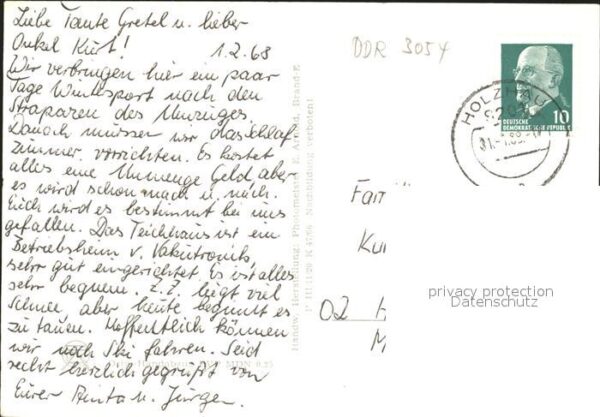 Liebe Tante Gretel u. lieber
Onkel Kurt! 1.2.68
Wir verbringen hier ein paar
Tage Wintersport nach den
Strapazen des Umzuges.
Danach müssen wir das Schlaf-
zimmer vorrichten. Es kostet
alles eine Unmenge Geld aber
es wird schon nach u. nach.
Euch wird es bestimmt bei uns
gefallen. Das Teichhaus ist ein
Betriebsheim v. Vakutronik
sehr gut eingerichtet. Es ist alles
sehr bequem. Z.Z. liegt viel
Schnee, aber heute beginnt es
zu tauen. Hoffentlich können
wir noch Ski fahren. Seid
recht herzlich gegrüßt von
Eurer Anita u. Jürgen.
Handw. Herstellung: Photomeister E. Arnold, Brand-E.
Nachbildung verboten!
MDN 0,25
DDR 3054
HOLZHAU
10
DEUTSCHE
DEMOKRATISCHE REPUBLIK
Fam
Ku
OZ H
M
privacy protection
Datenschutz